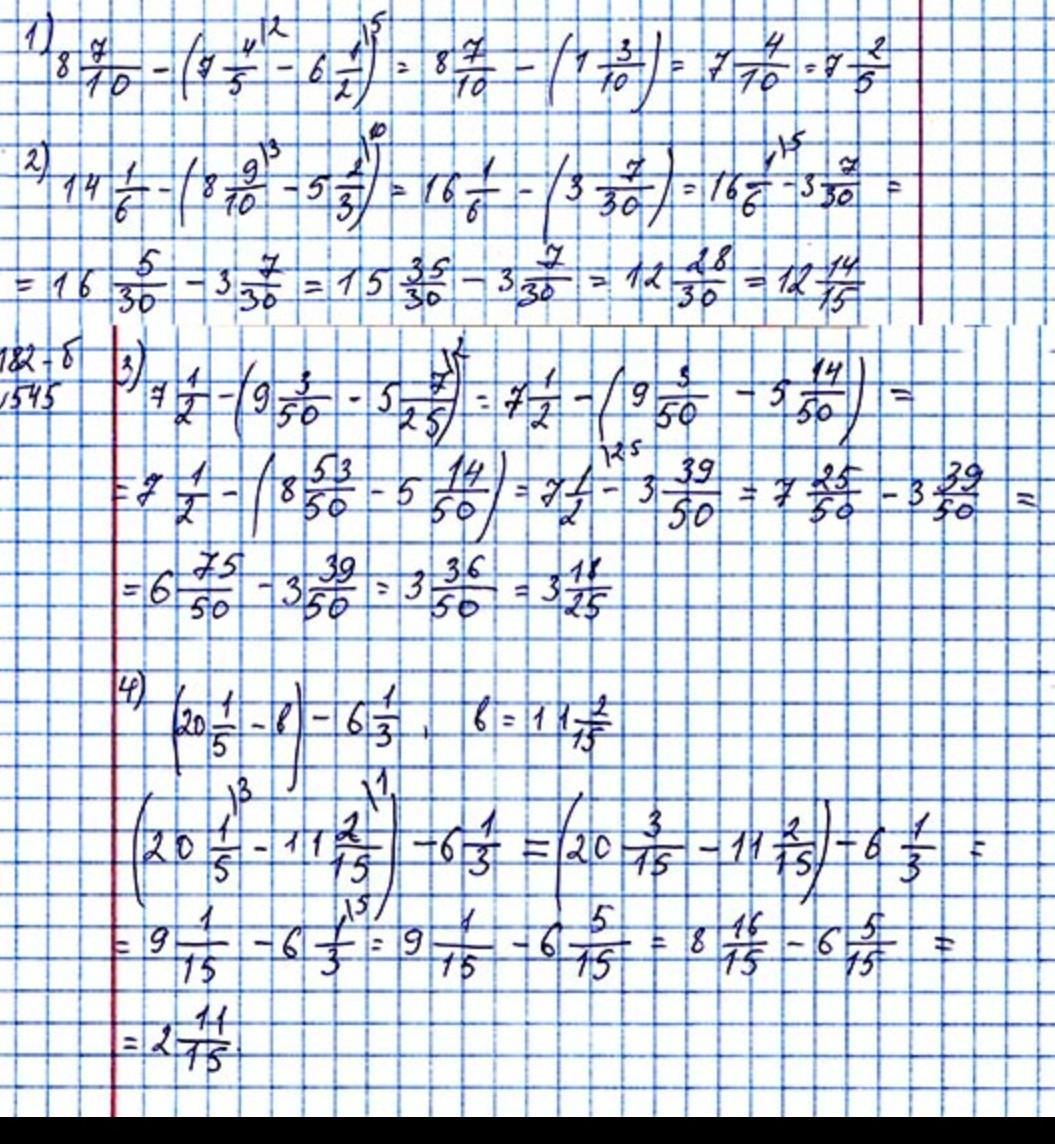 1) 8 7/10 - (7 4/5\2 - 6 1/2\5) = 8 7/10 - (1 3/10) = 7 4/10 = 7 2/5
2) 14 1/6 - (8 9/10\3 - 5 2/3\10) = 16 1/6 - (3 7/30) = 16 1/6\5 - 3 7/30 =
= 16 5/30 - 3 7/30 = 15 35/30 - 3 7/30 = 12 28/30 = 12 14/15
182 - б
545
3) 7 1/2 - (9 3/50 - 5 7/25\2) = 7 1/2 - (9 3/50 - 5 14/50) =
= 7 1/2 - (8 53/50 - 5 14/50) = 7 1/2\25 - 3 39/50 = 7 25/50 - 3 39/50 =
= 6 75/50 - 3 39/50 = 3 36/50 = 3 18/25
4) (20 1/5 - в) - 6 1/3, в = 11 2/15
(20 1/5\3 - 11 2/15\1) - 6 1/3 = (20 3/15 - 11 2/15) - 6 1/3 =
= 9 1/15 - 6 1/3\5 = 9 1/15 - 6 5/15 = 8 16/15 - 6 5/15 =
= 2 11/15.